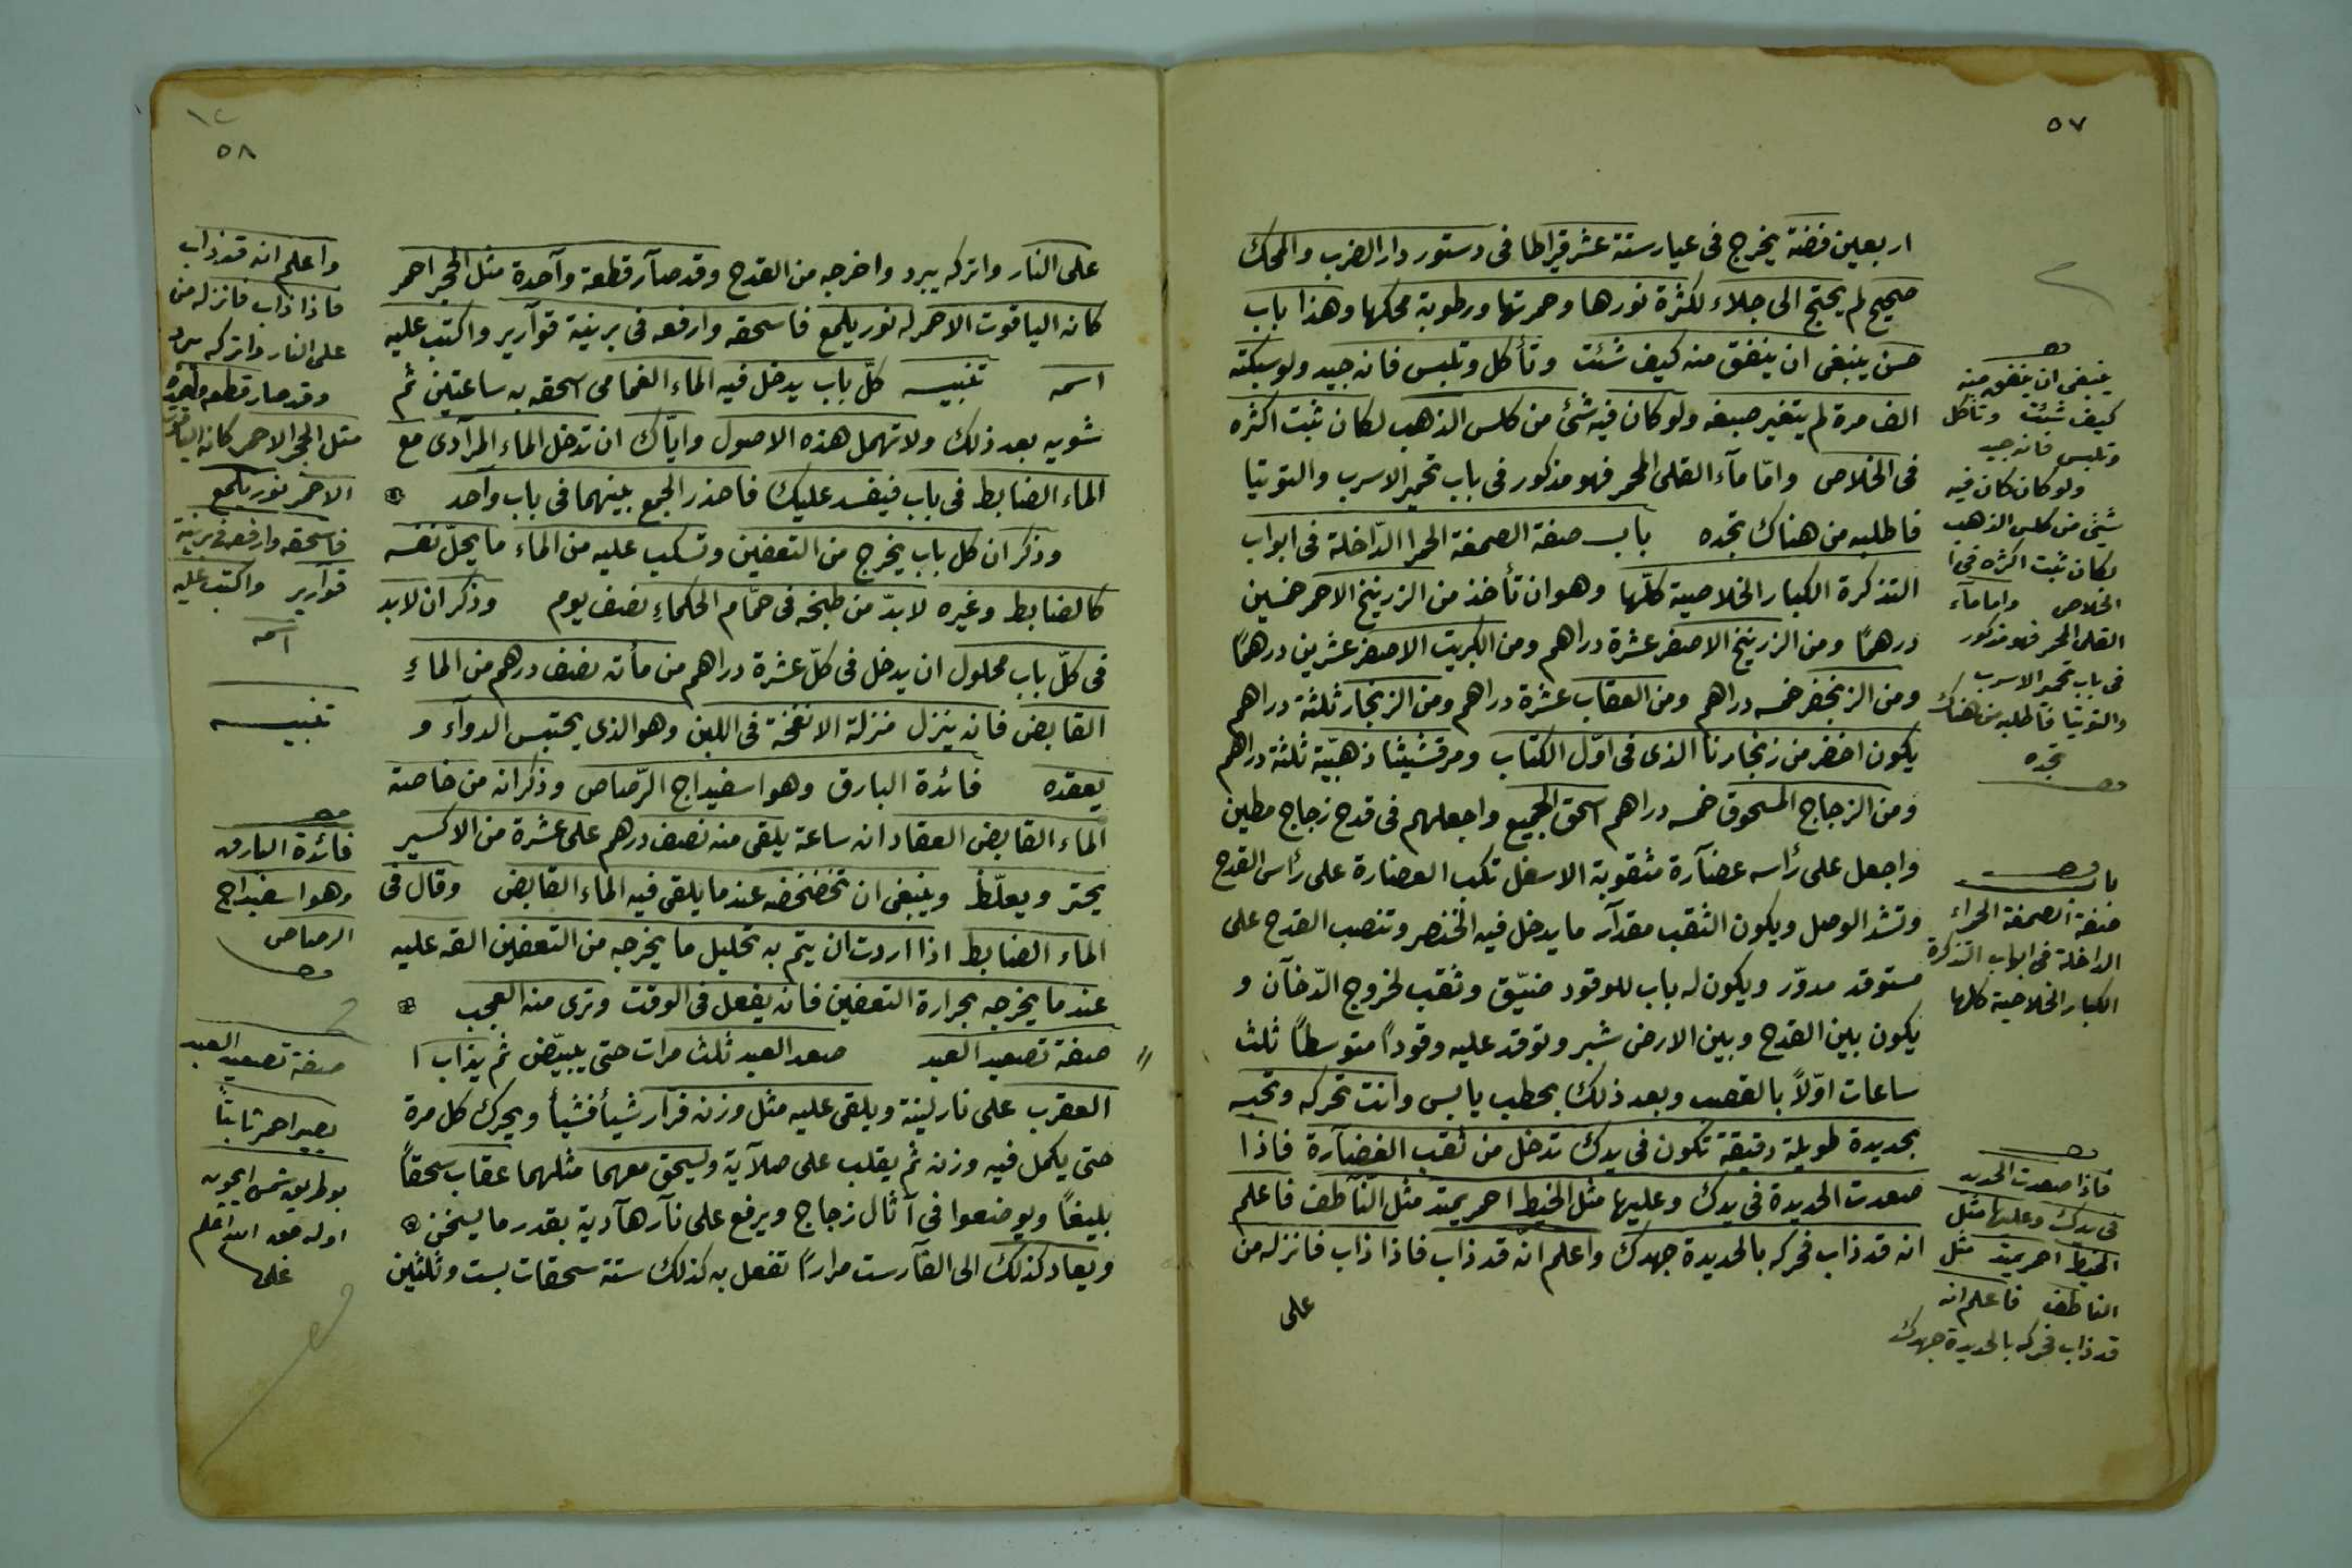 ٥٧
اربعين فضة يخرج فى عيار ستة عشر قيراطا فى دستور دار الضرب والمحك
صحيح لم يحتج الى جلاء لكثرة نورها وحمرتها ورطوبة محكها وهذا باب
حسن ينبغى ان ينفق منه كيف شئت وتأكل وتلبس فانه جيد ولو سبكته
الف مرة لم يتغير صبغه ولو كان فيه شئ من كلس الذهب لكان ثبت اكثره
فى الخلاص وامّا مآء القلى المحمر فهو مذكور فى باب تحمير الاسرب والتوتيا
فاطلبه من هناك تجده باب صفة الصمغة الحمرا الدّاخلة فى ابواب
التذكرة الكبار الخلاصية كلّها وهو ان تأخذ من الزرنيخ الاحمر خمسين
درهمًا ومن الزرنيخ الاصفر عشرة دراهم ومن الكبريت الاصفر عشرين درهمًا
ومن الزنجفر خمسه دراهم ومن العقاب عشرة دراهم ومن الزنجار ثلثة دراهم
يكون اخضر من زنجارنا الذى فى اوّل الكتاب ومرقشيثا ذهبيّة ثلثة دراهم
ومن الزجاج المسحوق خمسه دراهم اسحق الجميع واجعلهم فى قدح زجاج مطين
واجعل على رأسه غضآرة مثقوبة الاسفل تكب الغضارة على رأس القدح
وتشد الوصل ويكون الثقب مقدآر ما يدخل فيه الخنصر وتنصب القدح على
مستوقد مدوّر ويكون له باب للوقود ضيّق وثقب لخروج الدّخآن و
يكون بين القدح وبين الارض شبر وتوقد عليه وقوداً متوسطاً ثلث
ساعات اوّلاً بالقصب وبعد ذلك بحطب يابس وانت تحركه وتجسه
بحديدة طويلة دقيقة تكون فى يدك تدخل من ثقب الغضآرة فاذا
صعدت الحديدة فى يدك وعليها مثل الخيط احمر يمتد مثل النّآطف فاعلم
انه قد ذاب فحركه بالحديدة جهدك واعلم انّه قد ذاب فاذا ذاب فانزله من
على
ينبغى ان ينفق منه
كيف شئت وتأكل
وتلبس فانه جيد
ولو كان كان فيه
شئ من كلس الذهب
لكان ثبت اكثره فى ا
الخلاص واما مآء
القلى المحمر فهو مذكور
فى باب تحمير الاسرب
والتوتيا فاطلبه من هناك
تجده
باب
صفة الصمغة الحمراء
الداخلة فى ابواب التذكرة
الكبار الخلاصية كلها
فاذا صعدت الحديد
فى يدك وعليها مثل
الخيط احمر يمتد مثل
الناطف فاعلم انه
قد ذاب فحركه بالحديدة جهدك
١٢
٥٨
على النار واتركه يبرد واخرجه من القدح وقد صآر قطعة وآحدة مثل الحجر احمر
كانه الياقوت الاحمر له نور يلمع فاسحقه وارفعه فى برنية قوآرير واكتب عليه
اسمه تنبيه كلّ باب يدخل فيه الماء الغمامى اسحقه به ساعتين ثم
شويه بعد ذلك ولا تهمل هذه الاصول وايّاك ان تدخل الماء المرآدى مع
الماء الضابط فى باب فيفسد عليك فاحذر الجمع بينهما فى باب وآحد
وذكر ان كل باب يخرج من التعفين وتسكب عليه من الماء ما يحلّ نفسه
كالضابط وغيره لابدّ من طبخه فى حمّام الحكماءِ نصف يوم وذكر ان لابد
فى كلّ باب محلول ان يدخل فى كلّ عشرة دراهم من مأته نصف درهم من الماءِ
القابض فانه ينزل منزلة الانفخة فى اللبن وهو الذى يحتبس الدوآء و
يعقده فائدة البارق وهو اسفيداج الرّصاص وذكر انه من خاصته
الماء القابض العقاد انه ساعة يلقى منه نصف درهم على عشرة من الاكسير
يحتر ويغلّظ وينبغى ان تخضخضه عند ما يلقى فيه الماء القابض وقال فى
الماء الضابط اذا اردت ان يتم به تحليل ما يخرجه من التعفين القه عليه
عند ما يخرجه بحرارة التعفين فانه يفعل فى الوقت وترى منه العجب
صفة تصعيد العبد صعد العبد ثلث مرات حتى يبيّض ثم يذاب ا
العقرب على نار لينة ويلقى عليه مثل وزنه فرار شيأ فشيأ ويحرك كل مرة
حتى يكمل فيه وزنه ثم يقلب على صلآية ويسحق معهما مثلهما عقاب سحقاً
بليغاً ويوضعوا فى آثال زجاج ويرفع على نآر هآدية بقدر ما يسخن
ويعاد كذلك الى الفآر ست مراراً تفعل به كذلك ستة سحقات بست وثلثين
واعلم انه قد ذاب
فاذا ذاب فانزله من
على النار واتركه يبرد
وقد صار قطعه واحدة
مثل الحجر الاحمر كانه الياقوت
الاحمر نور يلمع
فاسحقه وارفعه فى برنية
قوآرير واكتب عليه
اسمه
تنبيه
فائدة البارق
وهو اسفيداج
الرصاص
صفة تصعيد العبد
يصير احمر ثابتاً